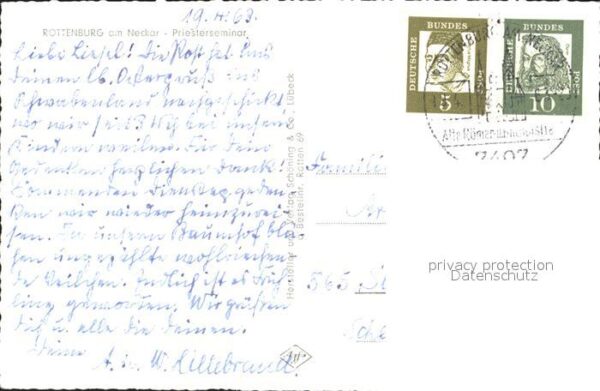 19.4.63.
ROTTENBURG am Neckar - Priesterseminar
Liebe Liesel! Die Post hat uns
Deinen lb. Ostergruß ins
Schwabenland nachgeschickt
wo wir seit 3 Wch bei unsern
Kindern weilen. Für Dein
Gedenken herzlichen Dank!
Kommenden Dienstag geden-
ken wir wieder heimzurei-
sen. In unserm Baumhof blü-
hen ungezählte wohlriechen-
de Veilchen. Endlich ist es Früh-
ling geworden. Wir grüßen
Dich u. alle die Deinen.
Deine
A. u. W. Hillebrand
Hersteller und Verlag Schöning & Co., Lübeck
Bestellnr. Rotten 69
DEUTSCHE BUNDESPOST
5
DEUTSCHE BUNDESPOST
10
ROTTENBURG
Alte Römer- u. Bischofsstadt
7407
Familie
565
privacy protection
Datenschutz